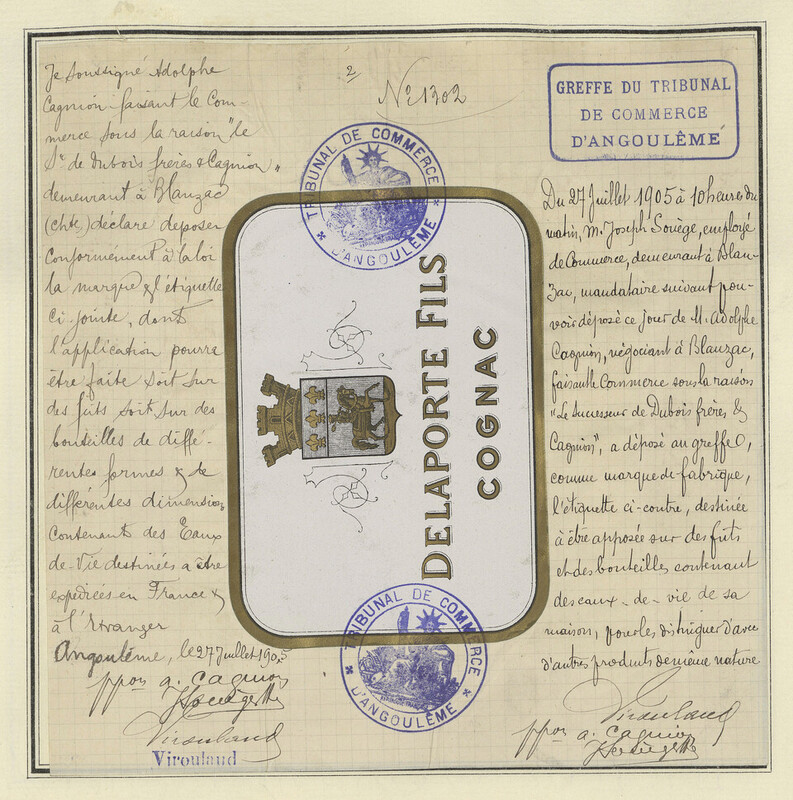 Je Soussigné Adolphe
Cagnion faisant le Com-
merce sous la raison "le
Sr de Dubois frères & Cagnion"
demeurant à Blanzac
(chte) déclare deposer
conformément à la loi
la marque & l'étiquette
ci jointe, dont
l'application pourra
être faite soit sur
des fûts soit sur des
bouteilles de diffé-
rentes formes & de
différentes dimensions
contenant des Eaux
de-Vie destinées a être
expediées en France &
à l'Etranger
Angoulême, le 27 Juillet 1905
ppon a. Cagnion
Virouland
Virouland
2
No 1302
TRIBUNAL DE COMMERCE
D'ANGOULÊME
DELAPORTE FILS
COGNAC
TRIBUNAL DE COMMERCE
D'ANGOULÊME
GREFFE DU TRIBUNAL
DE COMMERCE
D'ANGOULÊME
Du 27 Juillet 1905 à 10 heures du
matin, M. Joseph Souège, employé
de Commerce, demeurant à Blan-
zac, mandataire suivant pou-
voir déposé ce jour de M. Adolphe
Cagnion, négociant à Blanzac,
faisant le Commerce sous la raison
"Le Successeur de Dubois frères &
Cagnion", a déposé au greffe,
comme marque de fabrique,
l'étiquette ci-contre, destinée
à être apposée sur des fûts
et des bouteilles contenant
des eaux-de-vie de sa
maison, pour les distinguer d'avec
d'autres produits de même nature
Virouland
ppon a. Cagnion